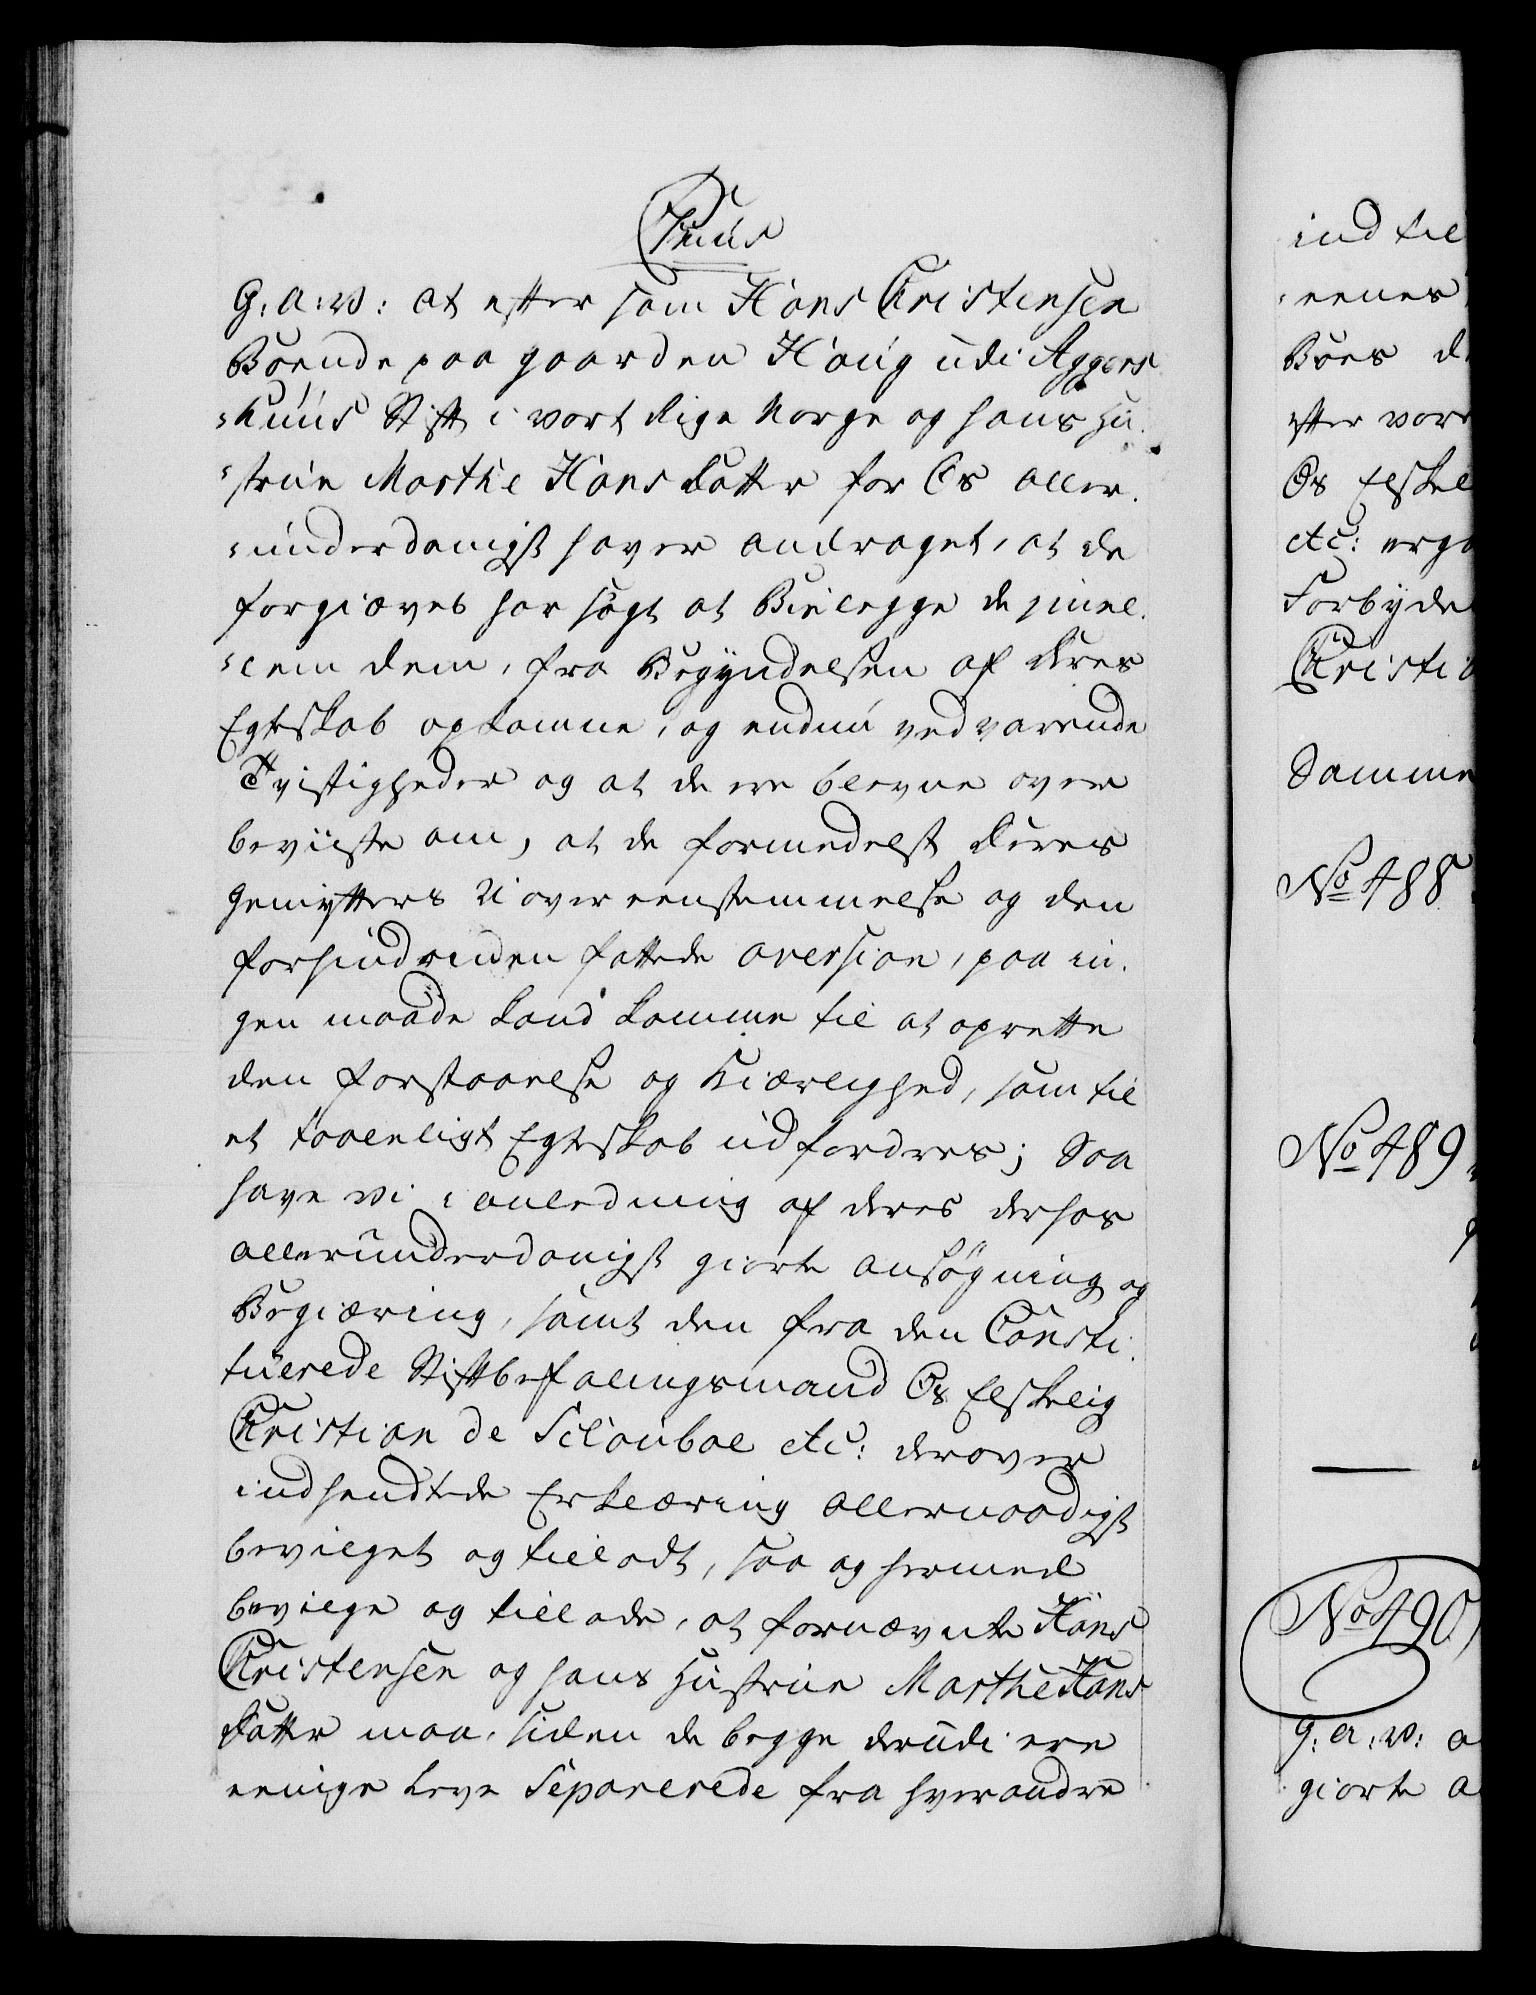 G: a: w: at eftersom Hans Christensen
Boende paa gaarden Houg udi Aggers
huus Stift i vort Rige Norge og hans Hu
strue Marthe Hans datter for Os aller
underdanigst haver andraget, at de
forgiæves har søgt at Bielegge de jmel
lem dem, fra Begyndelsen af deres
Egteskab opkomne, og endnu vedvarende
Tvistigheder og at de ere blevne over
beviiste om, at de formedelst deres
gemytters U overeenstemmelse og den
forhindrenden fattede aversion, paa in
gen maade kand komme til at oprette
den forstaaelse og Kiærlighed, som til
et taaenligt Egteskab udfordres; Saa
have vi i anledning af deres derhos
allerunderdanigst giorte ansøgning og
Begiæring, samt den fra den Consti
tuerede Stiftbefalingsmand Os Elskelig
Christian de Schouboe etc: derover
indsendte Erklæring allernaadigst
bevilget og tilladt, saa og hermed
bevilge og tillade, at fornævnte Hans
Christensen og hans Hustrue Marthe Hans
datter maa, siden de begge derudi ere
eenige leve Separerede fra hverandre
ind til
eenes
Boes
efter vore
Os Elskel
etc:
Forbyde
Christia
Samme
No 488
No 489
No 490
G: a: w: a
giorte a